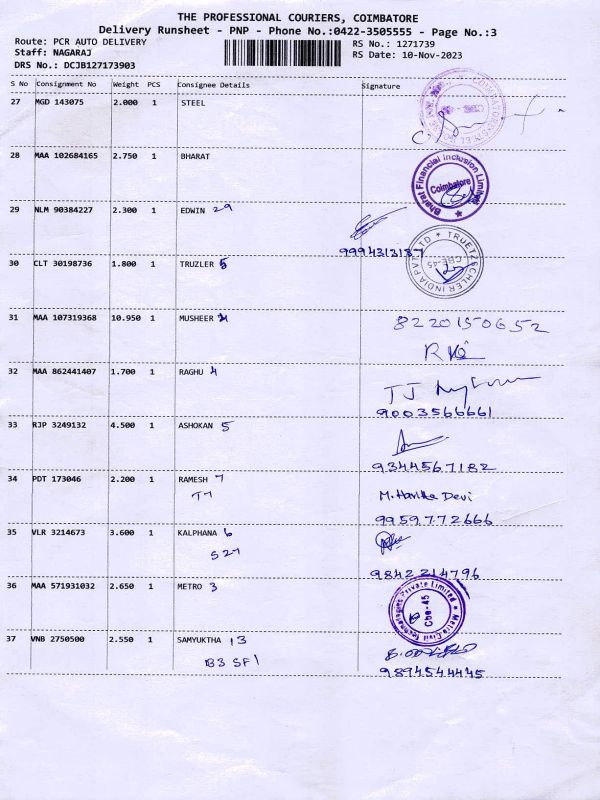 THE PROFESSIONAL COURIERS, COIMBATORE
Delivery Runsheet - PNP - Phone No.:0422-3505555 - Page No.:3
Route: PCR AUTO DELIVERY RS No.: 1271739
Staff: NAGARAJ RS Date: 10-Nov-2023
DRS No.: DCJB127173903
S No Consignment No Weight PCS Consignee Details Signature
27 MGD 143075 2.000 1 STEEL
28 MAA 102684165 2.750 1 BHARAT
Bharat Financial Inclusion Limited
Coimbatore
29 NLM 90384227 2.300 1 EDWIN 29
9994313187
30 CLT 30198736 1.800 1 TRUZLER 5
TRUETZSCHLER INDIA PVT. LTD
CBE-45
31 MAA 107319368 10.950 1 MUSHEER
8220150652
32 MAA 862441407 1.700 1 RAGHU 4
TJ
9003566661
33 RJP 3249132 4.500 1 ASHOKAN 5
9344567182
34 PDT 173046 2.200 1 RAMESH 7
M. Haritha Devi
9959772666
35 VLR 3214673 3.600 1 KALPHANA 6
S27
9842214796
36 MAA 571931032 2.650 1 METRO 3
Metro Civil Private Limited
Cbe-45
37 VNB 2750500 2.550 1 SAMYUKTHA 13
B3 SF1
9894544445